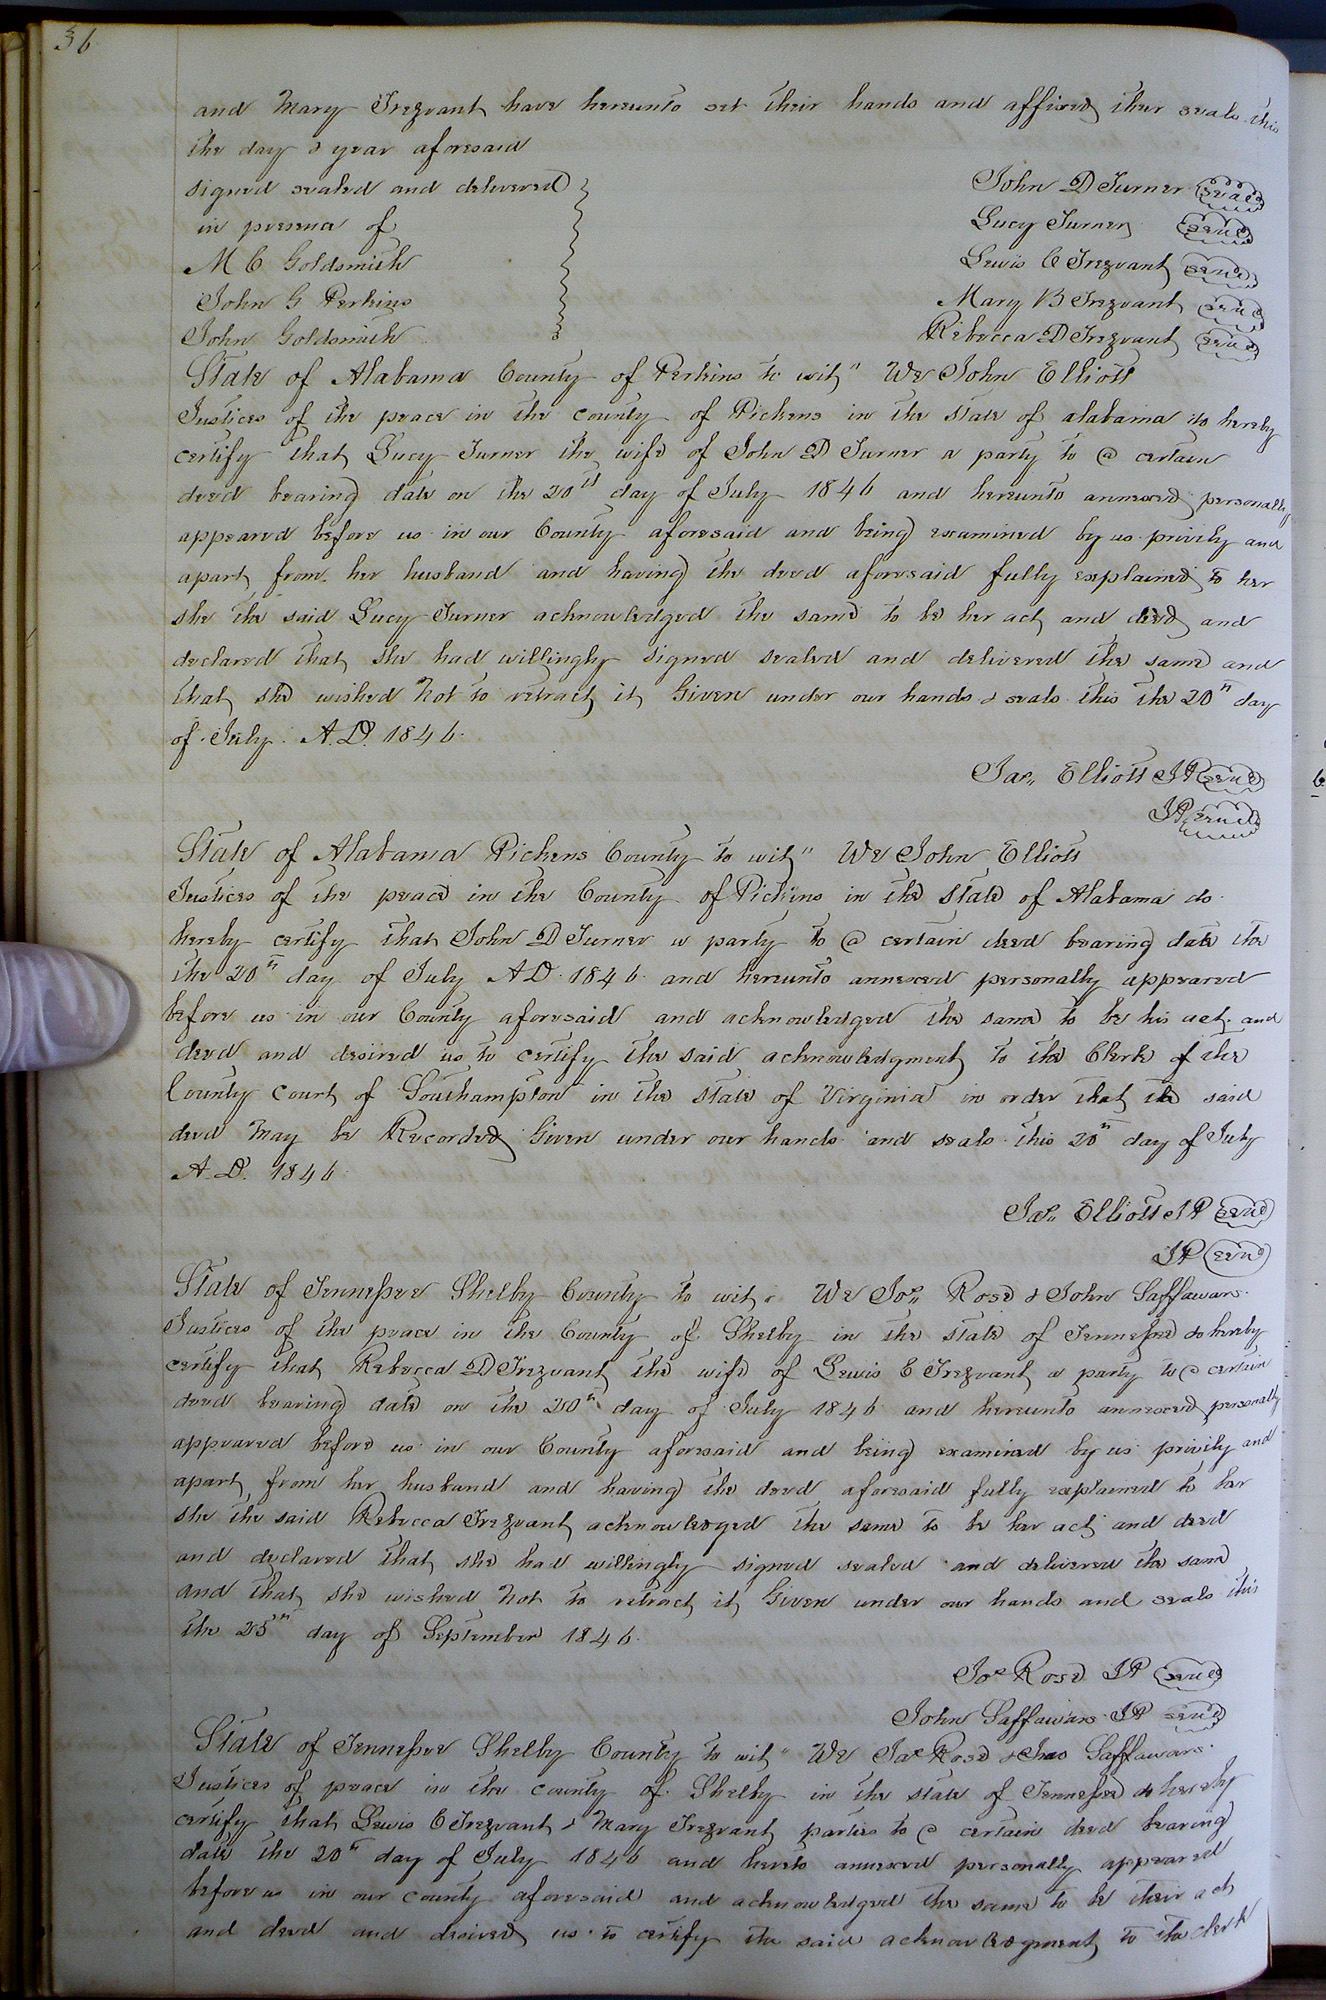 36
and Mary Trezvant have hereunto set their hands and affixed their seals this
the day & year aforesaid
signed sealed and delivered John D Turner seal
in presence of Lucy Turner seal
M C Goldsmith Lewis C Trezvant seal
John G Perkins Mary B Trezvant seal
John Goldsmith Rebecca D Trezvant seal
State of Alabama County of Perkins to wit" We John Elliott
Justices of the peace in the county of Pickens in the State of alabama do hereby
certify that Lucy Turner the wife of John D Turner a party to a certain
deed bearing date on the 20th day of July 1846 and hereunto annexed personally
appeared before us in our County aforesaid and being examined by us privily and
apart from her husband and having the deed aforesaid fully explained to her
she the said Lucy Turner acknowledged the same to be her act and deed and
declared that she had willingly signed sealed and delivered the same and
that she wished Not to retract it Given under our hands & seals this the 20th day
of July A.D. 1846
Jas Elliott JP seal
JP seal
State of Alabama Pickens County to wit" We John Elliott
Justices of the peace in the County of Pickens in the State of Alabama do
hereby certify that John D Turner a party to a certain deed bearing date the
the 20th day of July AD 1846 and hereunto annexed personally appeared
before us in our County aforesaid and acknowledged the same to be his act and
deed and desired us to certify the said acknowledgment to the Clerk of the
County Court of Southampton in the State of Virginia in order that the said
deed May be Recorded Given under our hands and seals this 20th day of July
A.D. 1846
Jas Elliott JP seal
JP seal
State of Tennessee Shelby County to wit. We Jos Rose & John Saffawans
Justices of the peace in the County of Shelby in the state of Tennessee do hereby
certify that Rebecca D Trezvant the wife of Lewis C Trezvant a party to a certain
deed bearing date on the 20th day of July 1846 and hereunto annexed personally
appeared before us in our County aforesaid and being examined by us privily and
apart from her husband and having the deed aforesaid fully explained to her
she the said Rebecca Trezvant acknowledged the same to be her act and deed
and declared that she had willingly signed sealed and delivered the same
and that she wished Not to retract it Given under our hands and seals this
the 25th day of September 1846
Jos Rose JP seal
John Saffawans JP seal
State of Tennessee Shelby County to wit" We Jas Rose & Jno Saffawans
Justices of peace in the county of Shelby in the state of Tennessee do hereby
certify that Lewis C Trezvant & Mary Trezvant parties to a certain deed bearing
date the 20th day of July 1846 and hereto annexed personally appeared
before us in our county aforesaid and acknowledged the same to be their act
and deed and desired us to certify the said acknowledgment to the clerk